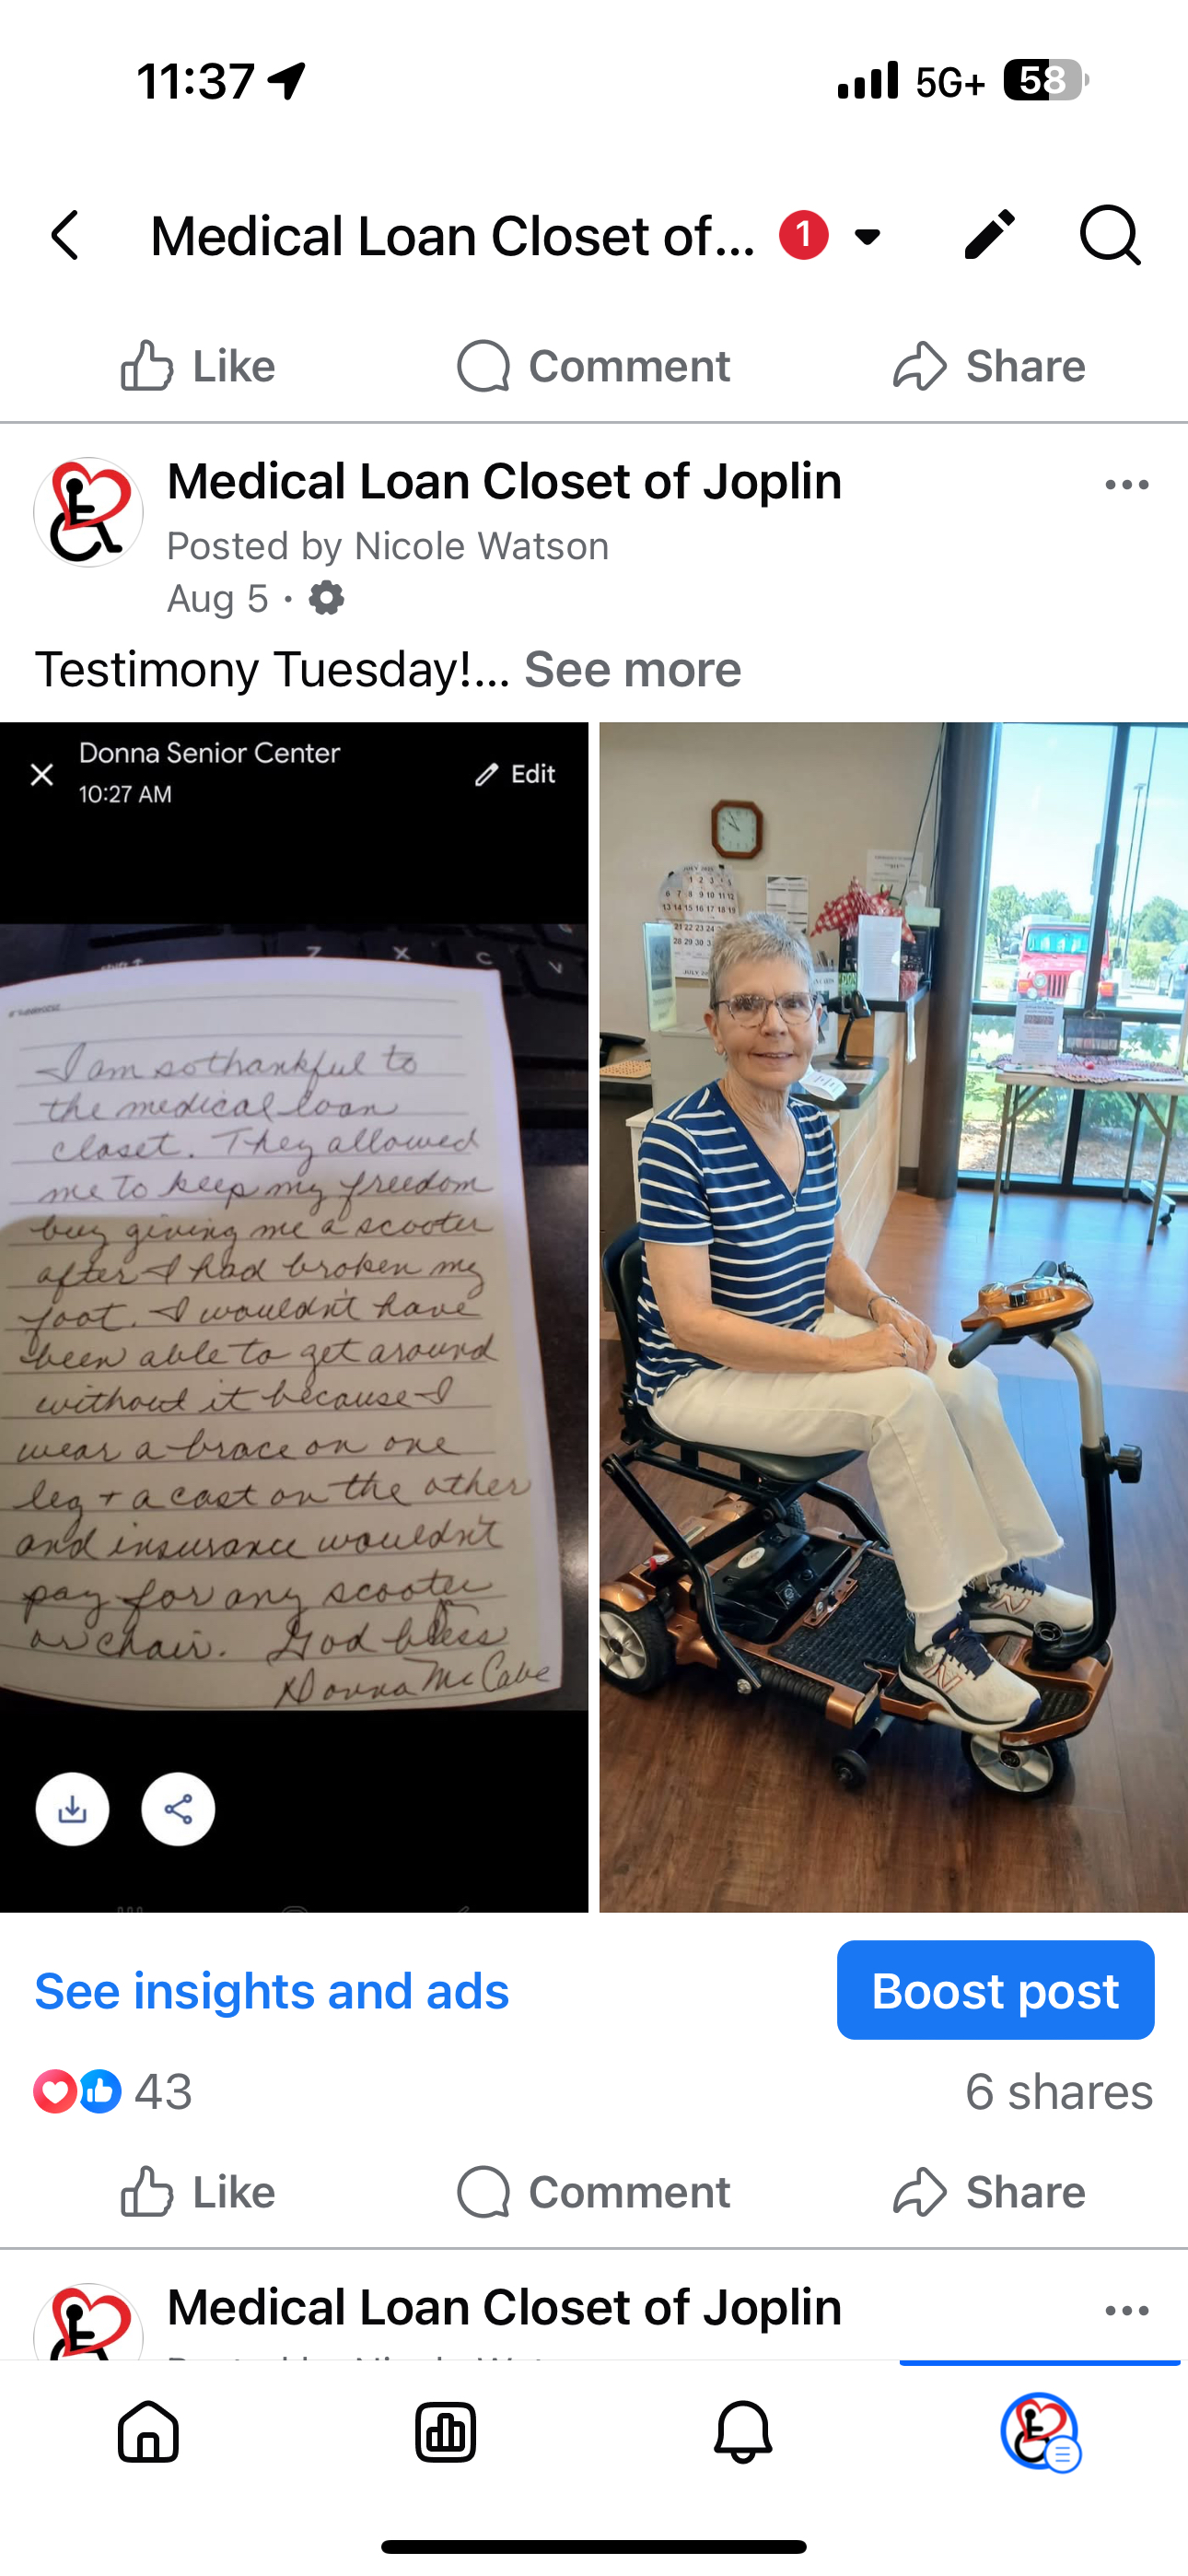 11:37
5G+ 58
Medical Loan Closet of... 1
Like Comment Share
Medical Loan Closet of Joplin
Posted by Nicole Watson
Aug 5 ·
Testimony Tuesday!... See more
Donna Senior Center
10:27 AM
Edit
Z X C V
I am so thankful to
the medical loan
closet. They allowed
me to keep my freedom
buy giving me a scooter
after I had broken my
foot. I wouldn't have
been able to get around
without it because I
wear a brace on one
leg + a cast on the other
and insurance wouldn't
pay for any scooter
or chair. God bless
Donna McCabe
1 2 3 5
6 7 8 9 10 11 12
13 14 15 16 17 18 19
21 22 23 24
28 29 30 3
JULY
N
See insights and ads
Boost post
43
6 shares
Like Comment Share
Medical Loan Closet of Joplin